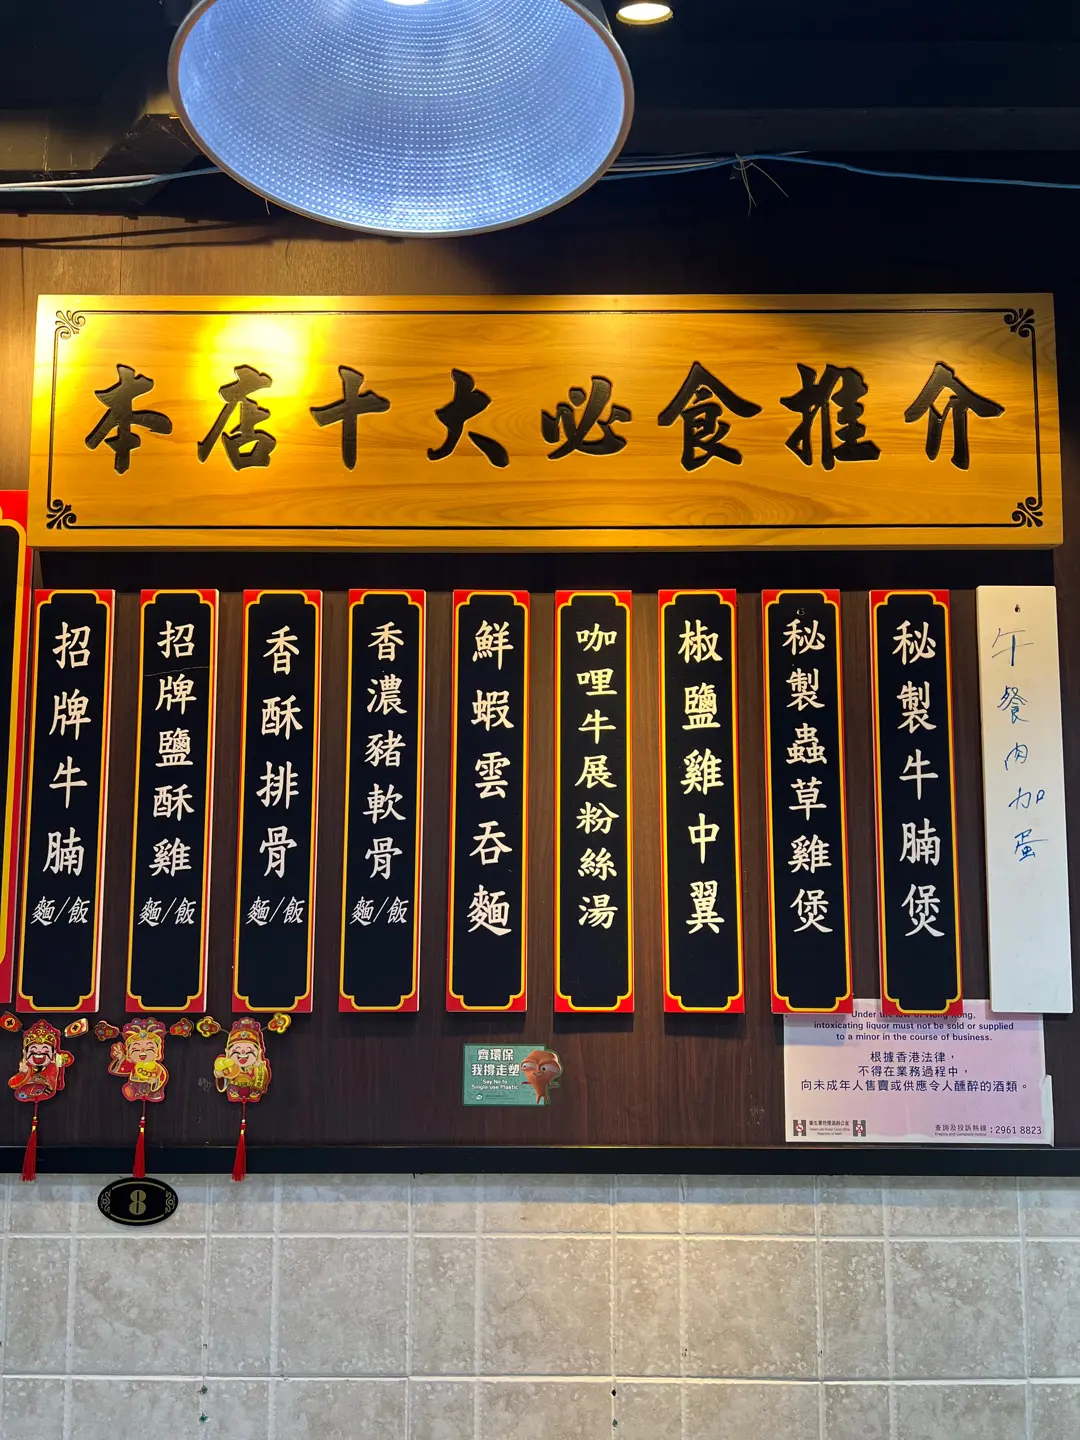 本店十大必食推介
招牌牛腩麵/飯
招牌鹽酥雞麵/飯
香酥排骨麵/飯
香濃豬軟骨麵/飯
鮮蝦雲吞麵
咖哩牛展粉絲湯
椒鹽雞中翼
秘製蟲草雞煲
秘製牛腩煲
午餐肉加蛋
齊環保
我撐走塑
Say No to
Single-use Plastic
Under the law of Hong Kong,
intoxicating liquor must not be sold or supplied
to a minor in the course of business.
根據香港法律，
不得在業務過程中，
向未成年人售賣或供應令人醺醉的酒類。
衞生署控煙酒辦公室
查詢及投訴熱線：2961 8823
8